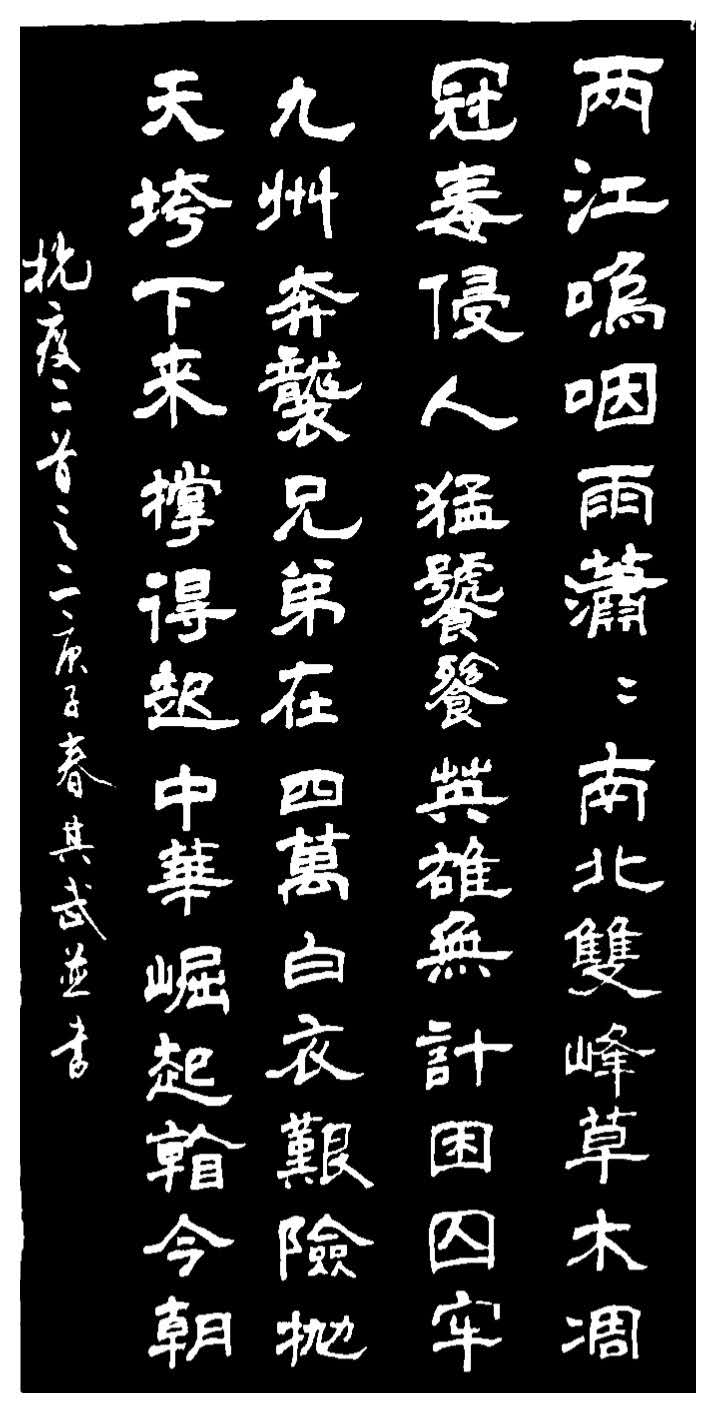 两江嗚咽雨瀟〻南北雙峰草木凋
冠毒侵人猛饕餮英雄無計困囚牢
九州奔襲兄弟在四萬白衣艱險拋
天垮下来撑得起中華崛起今朝
抗疫二首之二庚子春其武並書